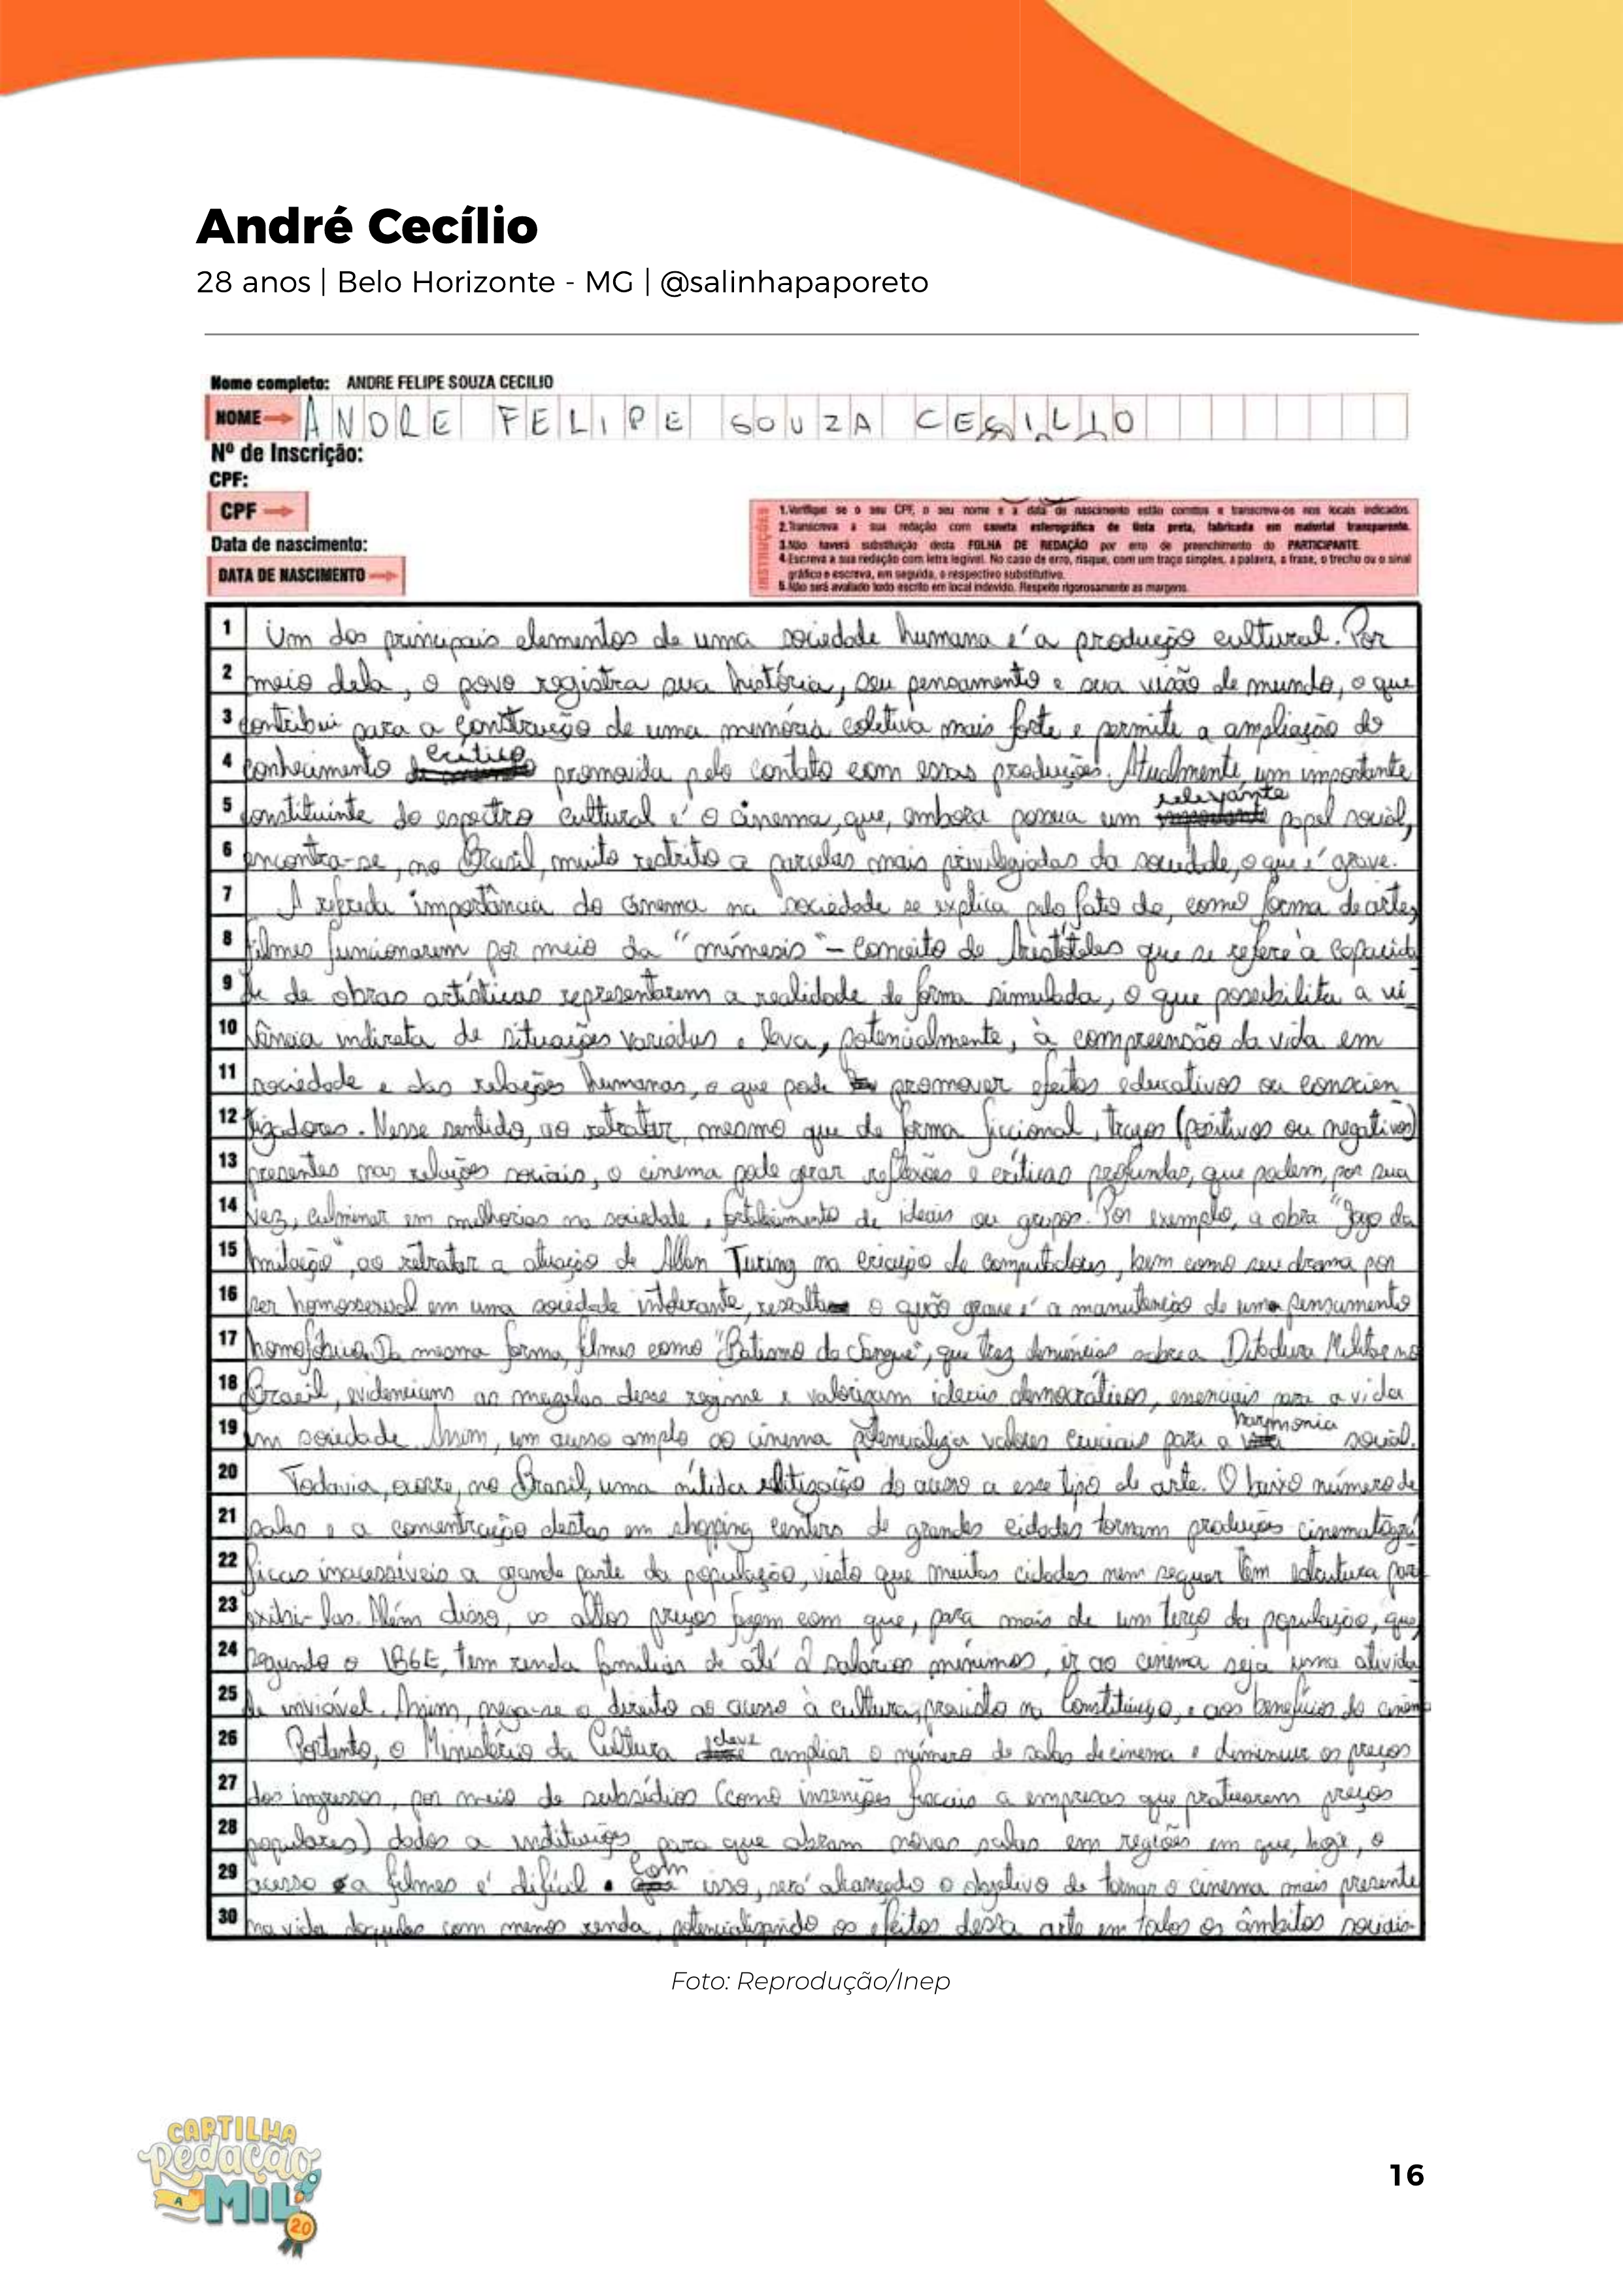 André Cecílio
28 anos | Belo Horizonte - MG | @salinhapaporeto
Nome completo: ANDRE FELIPE SOUZA CECILIO
NOME ANDRE FELIPE SOUZA CECILIO
Nº de Inscrição:
CPF:
CPF
Data de nascimento:
DATA DE NASCIMENTO
INSTRUÇÕES
1.Verifique se o seu CPF, o seu nome e a data de nascimento estão corretos e transcreva-os nos locais indicados.
2.Transcreva a sua redação com caneta esferográfica de tinta preta, fabricada em material transparente.
3.Não haverá substituição desta FOLHA DE REDAÇÃO por erro de preenchimento do PARTICIPANTE.
4.Escreva a sua redação com letra legível. No caso de erro, risque, com um traço simples, a palavra, a frase, o trecho ou o sinal
gráfico e escreva, em seguida, o respectivo substitutivo.
5.Não será avaliado texto escrito em local indevido. Respeite rigorosamente as margens.
1 Um dos principais elementos de uma sociedade humana é a produção cultural. Por
2 meio dela, o povo registra sua história, seu pensamento e sua visão de mundo, o que
3 contribui para a construção de uma memória coletiva mais forte e permite a ampliação do
4 conhecimento crítico promovida pelo contato com essas produções. Atualmente, um importante
5 constituinte do espectro cultural é o cinema, que, embora possua um relevante papel social,
6 encontra-se, no Brasil, muito restrito a parcelas mais privilegiadas da sociedade, o que é grave.
7 A referida importância do cinema na sociedade se explica pelo fato de, como forma de arte,
8 filmes funcionarem por meio da "mímesis" – conceito de Aristóteles que se refere à capacida
9 de de obras artísticas representarem a realidade de forma simulada, o que possibilita a vi
10 vência indireta de situações variadas e leva, potencialmente, à compreensão da vida em
11 sociedade e das relações humanas, o que pode promover efeitos educativos ou conscien
12 tizadores. Nesse sentido, ao retratar, mesmo que de forma ficcional, traços (positivos ou negativos)
13 presentes nas relações sociais, o cinema pode gerar reflexões e críticas profundas, que podem, por sua
14 vez, culminar em melhorias na sociedade e fortalecimento de ideais ou grupos. Por exemplo, a obra "Jogo da
15 Imitação", ao retratar a atuação de Allan Turing na criação de computadores, bem como seu drama por
16 ser homossexual em uma sociedade intolerante, ressalta o quão grave é a manutenção de um pensamento
17 homofóbico. Da mesma forma, filmes como "Batismo de Sangue", que traz denúncias sobre a Ditadura Militar no
18 Brasil, evidenciam as mazelas desse regime e valorizam ideais democráticos, essenciais para a vida
19 em sociedade. Assim, um acesso amplo ao cinema potencializa valores cruciais para a harmonia social.
20 Todavia, ocorre, no Brasil, uma nítida elitização do acesso a esse tipo de arte. O baixo número de
21 salas e a concentração destas em shopping centers de grandes cidades tornam produções cinematográ
22 ficas inacessíveis a grande parte da população, visto que muitas cidades nem sequer têm estrutura para
23 exibi-las. Além disso, os altos preços fazem com que, para mais de um terço da população, que,
24 segundo o IBGE, tem renda familiar de até 2 salários mínimos, ir ao cinema seja uma ativida
25 de inviável. Assim, nega-se o direito ao acesso à cultura, previsto na Constituição, e aos benefícios do cinema
26 Portanto, o Ministério da Cultura deve ampliar o número de salas de cinema e diminuir os preços
27 dos ingressos, por meio de subsídios (como insenções fiscais a empresas que praticarem preços
28 populares) dados a instituições para que abram novas salas em regiões em que, hoje, o
29 acesso a filmes é difícil. Com isso, será alcançado o objetivo de tornar o cinema mais presente
30 na vida daqueles com menos renda, potencializando os efeitos desta arte em todos os âmbitos sociais.
Foto: Reprodução/Inep
CARTILHA
Redação
A
MIL
20
16